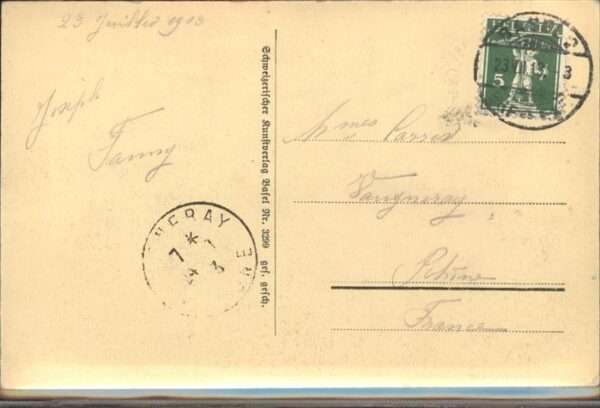 23 Juillet 1913
Joseph
Fanny
Schweizerischer Kunstverlag Basel Nr. 3299 ges. gesch.
HELVETIA
5
23.VII.13
3
Mmes Carret
Vaugneray
Rhône
France
UGNERAY
7 *
24